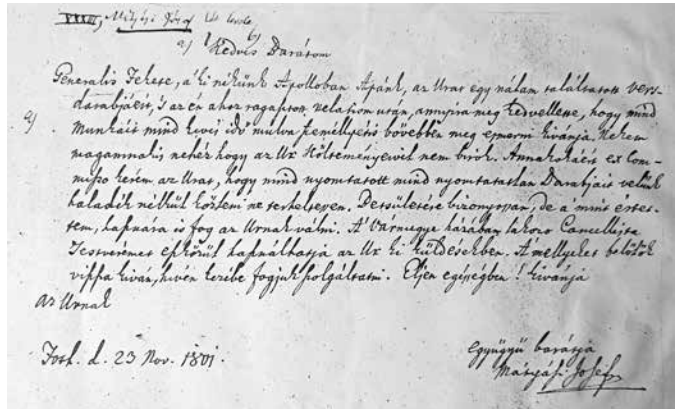 XXXIII, Mátyási József
a) b)
Kedves Barátom
Generalis Fekete, a' ki nékünk Apolloban Apánk, az Urat egy nálam találtatott Vers-
darabjáért, 's az én ahoz ragasztott relatiom után, annyira meg kedvellette, hogy mind
a) Munkáit mind kevés idő mulva személlyesis bővebben meg esmerni kivánja. Nekem
magamnakis nehéz hogy az Ur Kölleményeivel nem birok. Annakokáért ex Com-
misso kérem az Urat, hogy mind nyomtatott mind nyomtatatlan Darabjait velünk
haladék nélkül közleni ne terheltessen. Betsületére bizonyosan, de a' mint értet-
tem, hasznára is fog az Urnak válni. A' Varmegye házában lakozó Cancellista
Testvéremet eszközül használhatja az Ur ki küldésekben. A' mellyeket belőlök
vissza kiván, hiven kezébe fogjuk szolgáltatni. Éljen egésségben! kivánja
az Urnak
Pesth. d. 23 Nov. 1801.
együgyü barátja
Mátyási Josef